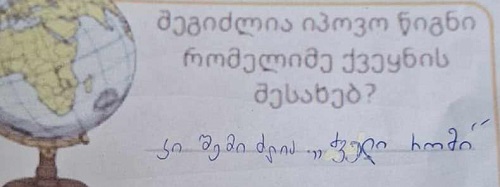 შეგიძლია იპოვო წიგნი
რომელიმე ქვეყნის
შესახებ?
კი შემიძლია „ძველი რომი“